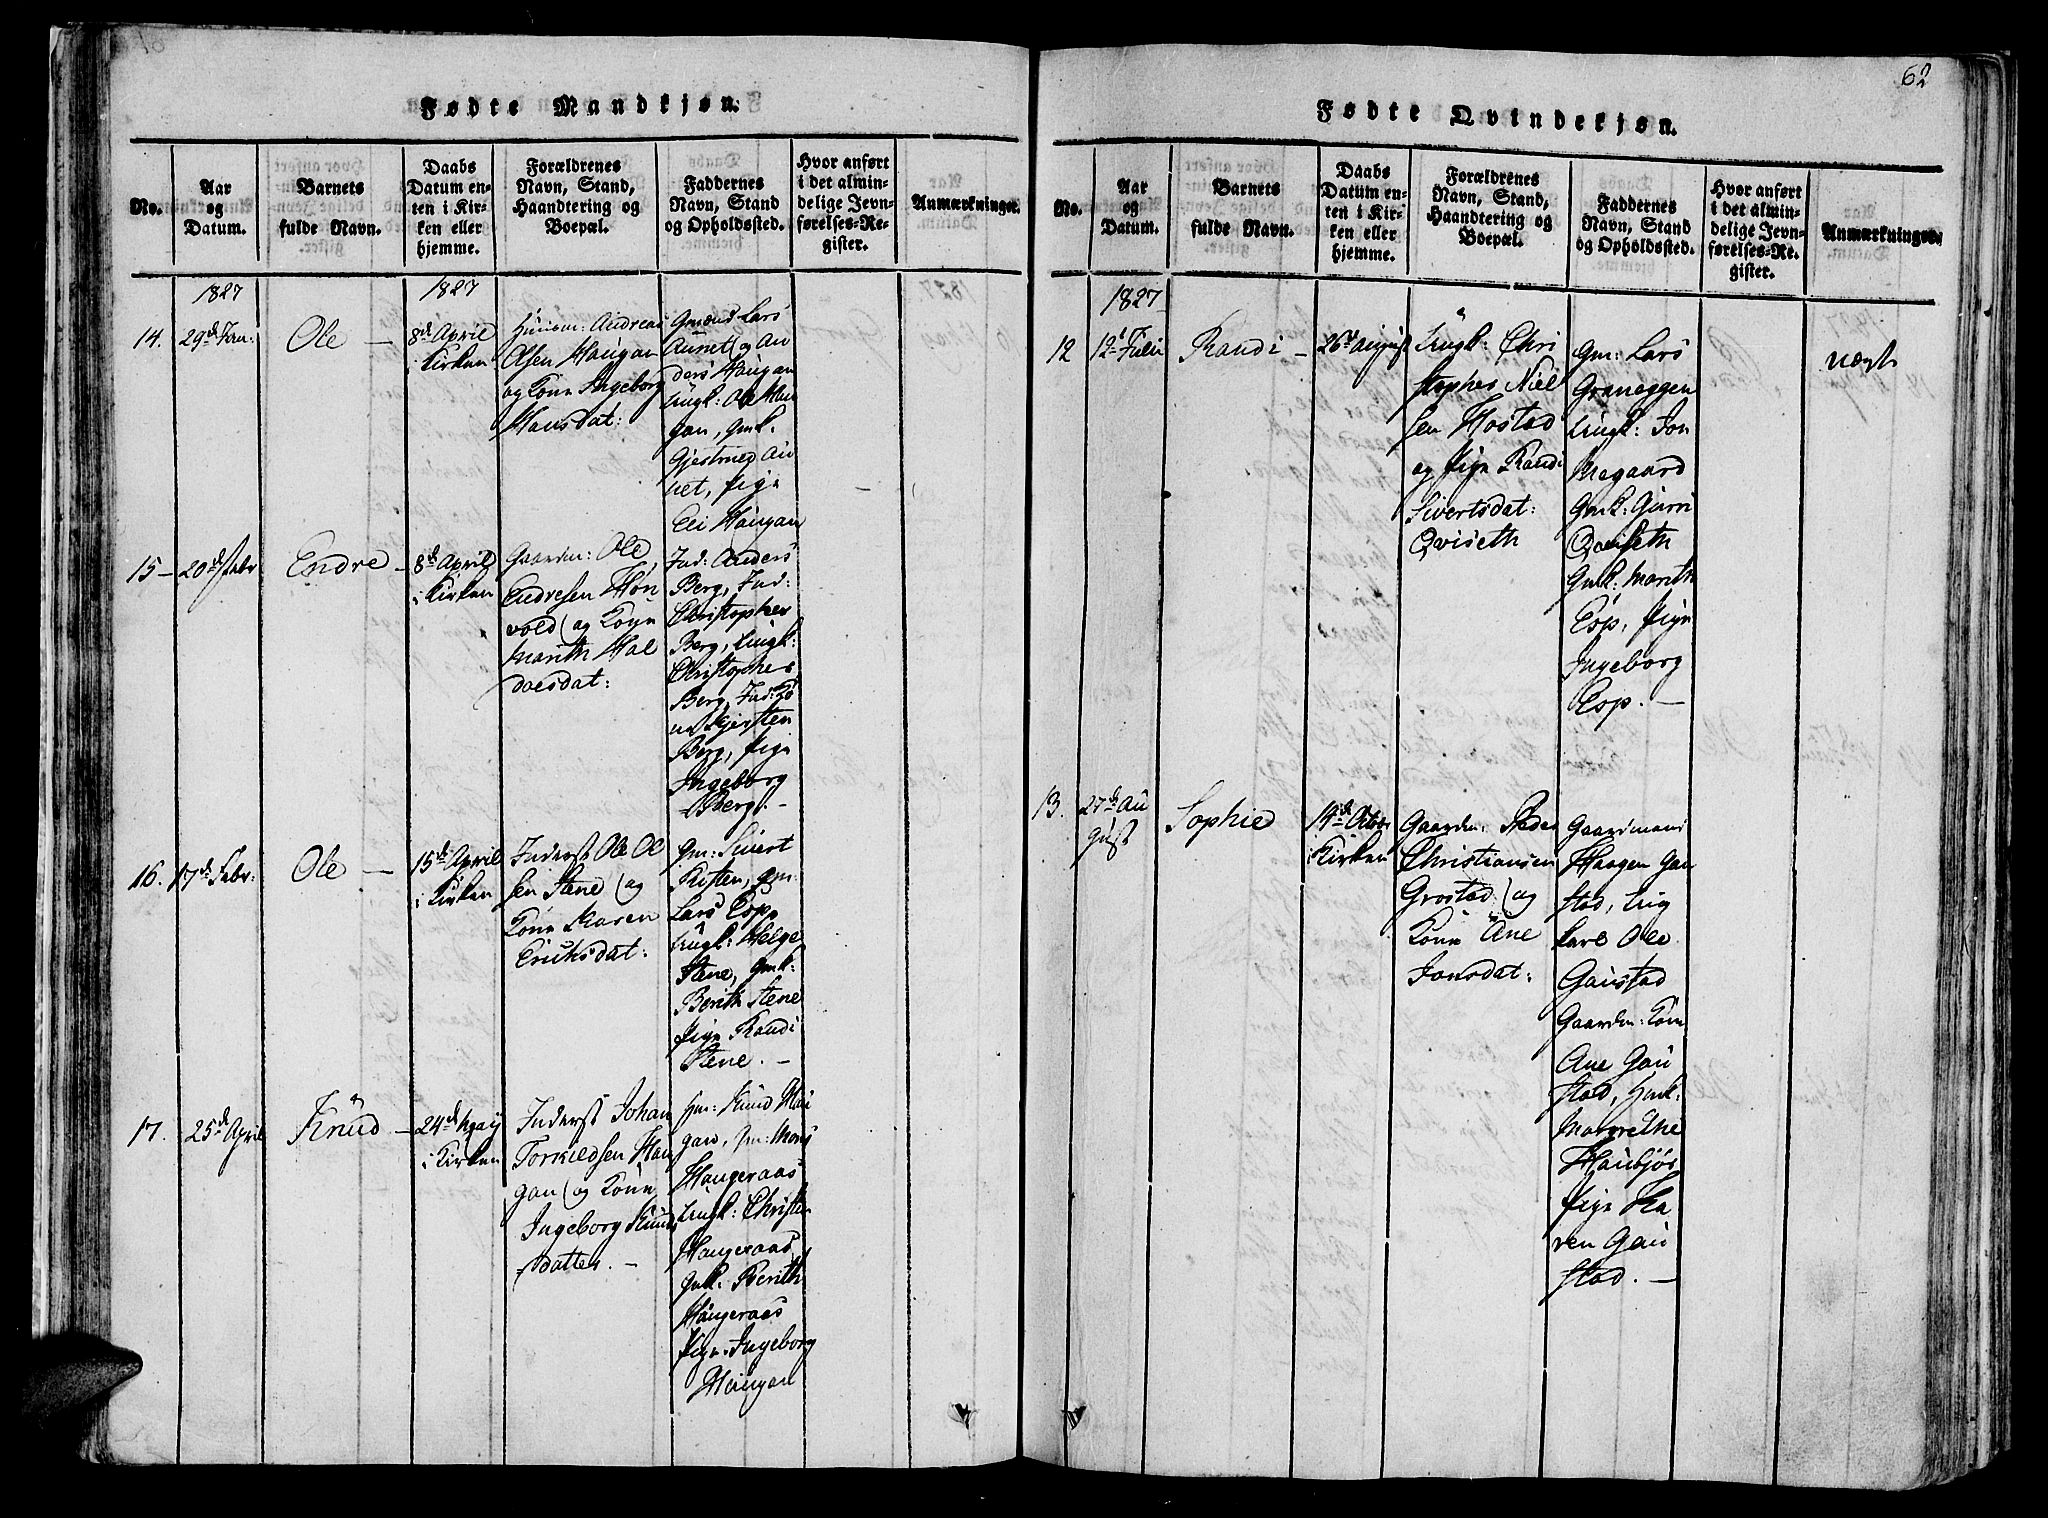 62
Fødte Mandkjøn.
No.
Aar
og
Datum.
Barnets
fulde Navn.
Daabs
Datum en-
ten i Kir-
ken eller
hjemme.
Forældrenes
Navn, Stand,
Haandtering og
Boepæl.
Faddernes
Navn, Stand
og Opholdssted.
Hvor anført
i det almin-
delige Jevn-
førelses-Re-
gister.
Anmærkninger.
1827
1827
14.
29de Jan:
Ole —
8de April
i Kirken
Huusm: Andreas
Olsen Haugan
og Kone Ingeborg
Hansdat:
Gmænd Lars
Aunet og An
ders Haugan
Ungk: Ole Hau
gan, Gmk.
Gjestrued Au
net, Pige
Eli Haugan
15 —
20de Febr
Endre —
8de April
i Kirken
Gaardm: Ole
Endresen Hon
vold og Kone
Marith Hal
doesdat:
Ind: Anders
Berg, Ind:
Christopher
Berg, Ungk:
Christopher
Berg, Ind: Ko
ne Kjersten
Berg, Pige
Ingeborg
Berg. —
16.
17de Febr:
Ole —
15de April
i Kirken
Inderst Ole Ol
sen Stene og
Kone Karen
Eriksdat:
Gm: Sivert
Risten, Gm:
Lars Esp,
Ungk: Helge
Stene, Gmk:
Berith Stene
Pige Randi
Stene. —
17.
25de April
Knud —
24de Maij
i Kirken
Inderst Johan
Torkildsen Hau
gan og Kone
Ingeborg Knuds
datter. —
Hm: Knud Hau
gan, Gm: Mons
Haugeraas
Ungk: Christen
Haugeraas
Gmk: Berith
Haugeraas
Pige Ingeborg
Haugan
Fødte Qvindekjøn.
No.
Aar
og
Datum.
Barnets
fulde Navn.
Daabs
Datum en-
ten i Kir-
ken eller
hjemme.
Forældrenes
Navn, Stand,
Haandtering og
Boepæl.
Faddernes
Navn, Stand
og Opholdssted.
Hvor anført
i det almin-
delige Jevn-
førelses-Re-
gister.
Anmærkninger.
1827
12
12te Julii
Randi —
26de August
Ungk: Chri
stopher Niel
sen Hostad
og Pige Randi
Sivertsdat:
Qviseth
Gm: Lars
Graneggen
Ungk: Jon
Megaard
Gmk: Guri
Qviseth
Gmk: Marith
Esp, Pige
Ingeborg
Esp. —
uægte
13.
27de Au
gust
Sophie
14de Octbr
i Kirken
Gaardm: Peder
Christiansen
Grostad og
Kone Ane
Jonsdat:
Gaardmand
Haagen Gau
stad, Ung
karl Ole
Gaustad
Gaardm: Kone
Ane Gau
stad, Hmk:
Margrethe
Haubjør
Pige Ka
ren Gau
stad. —